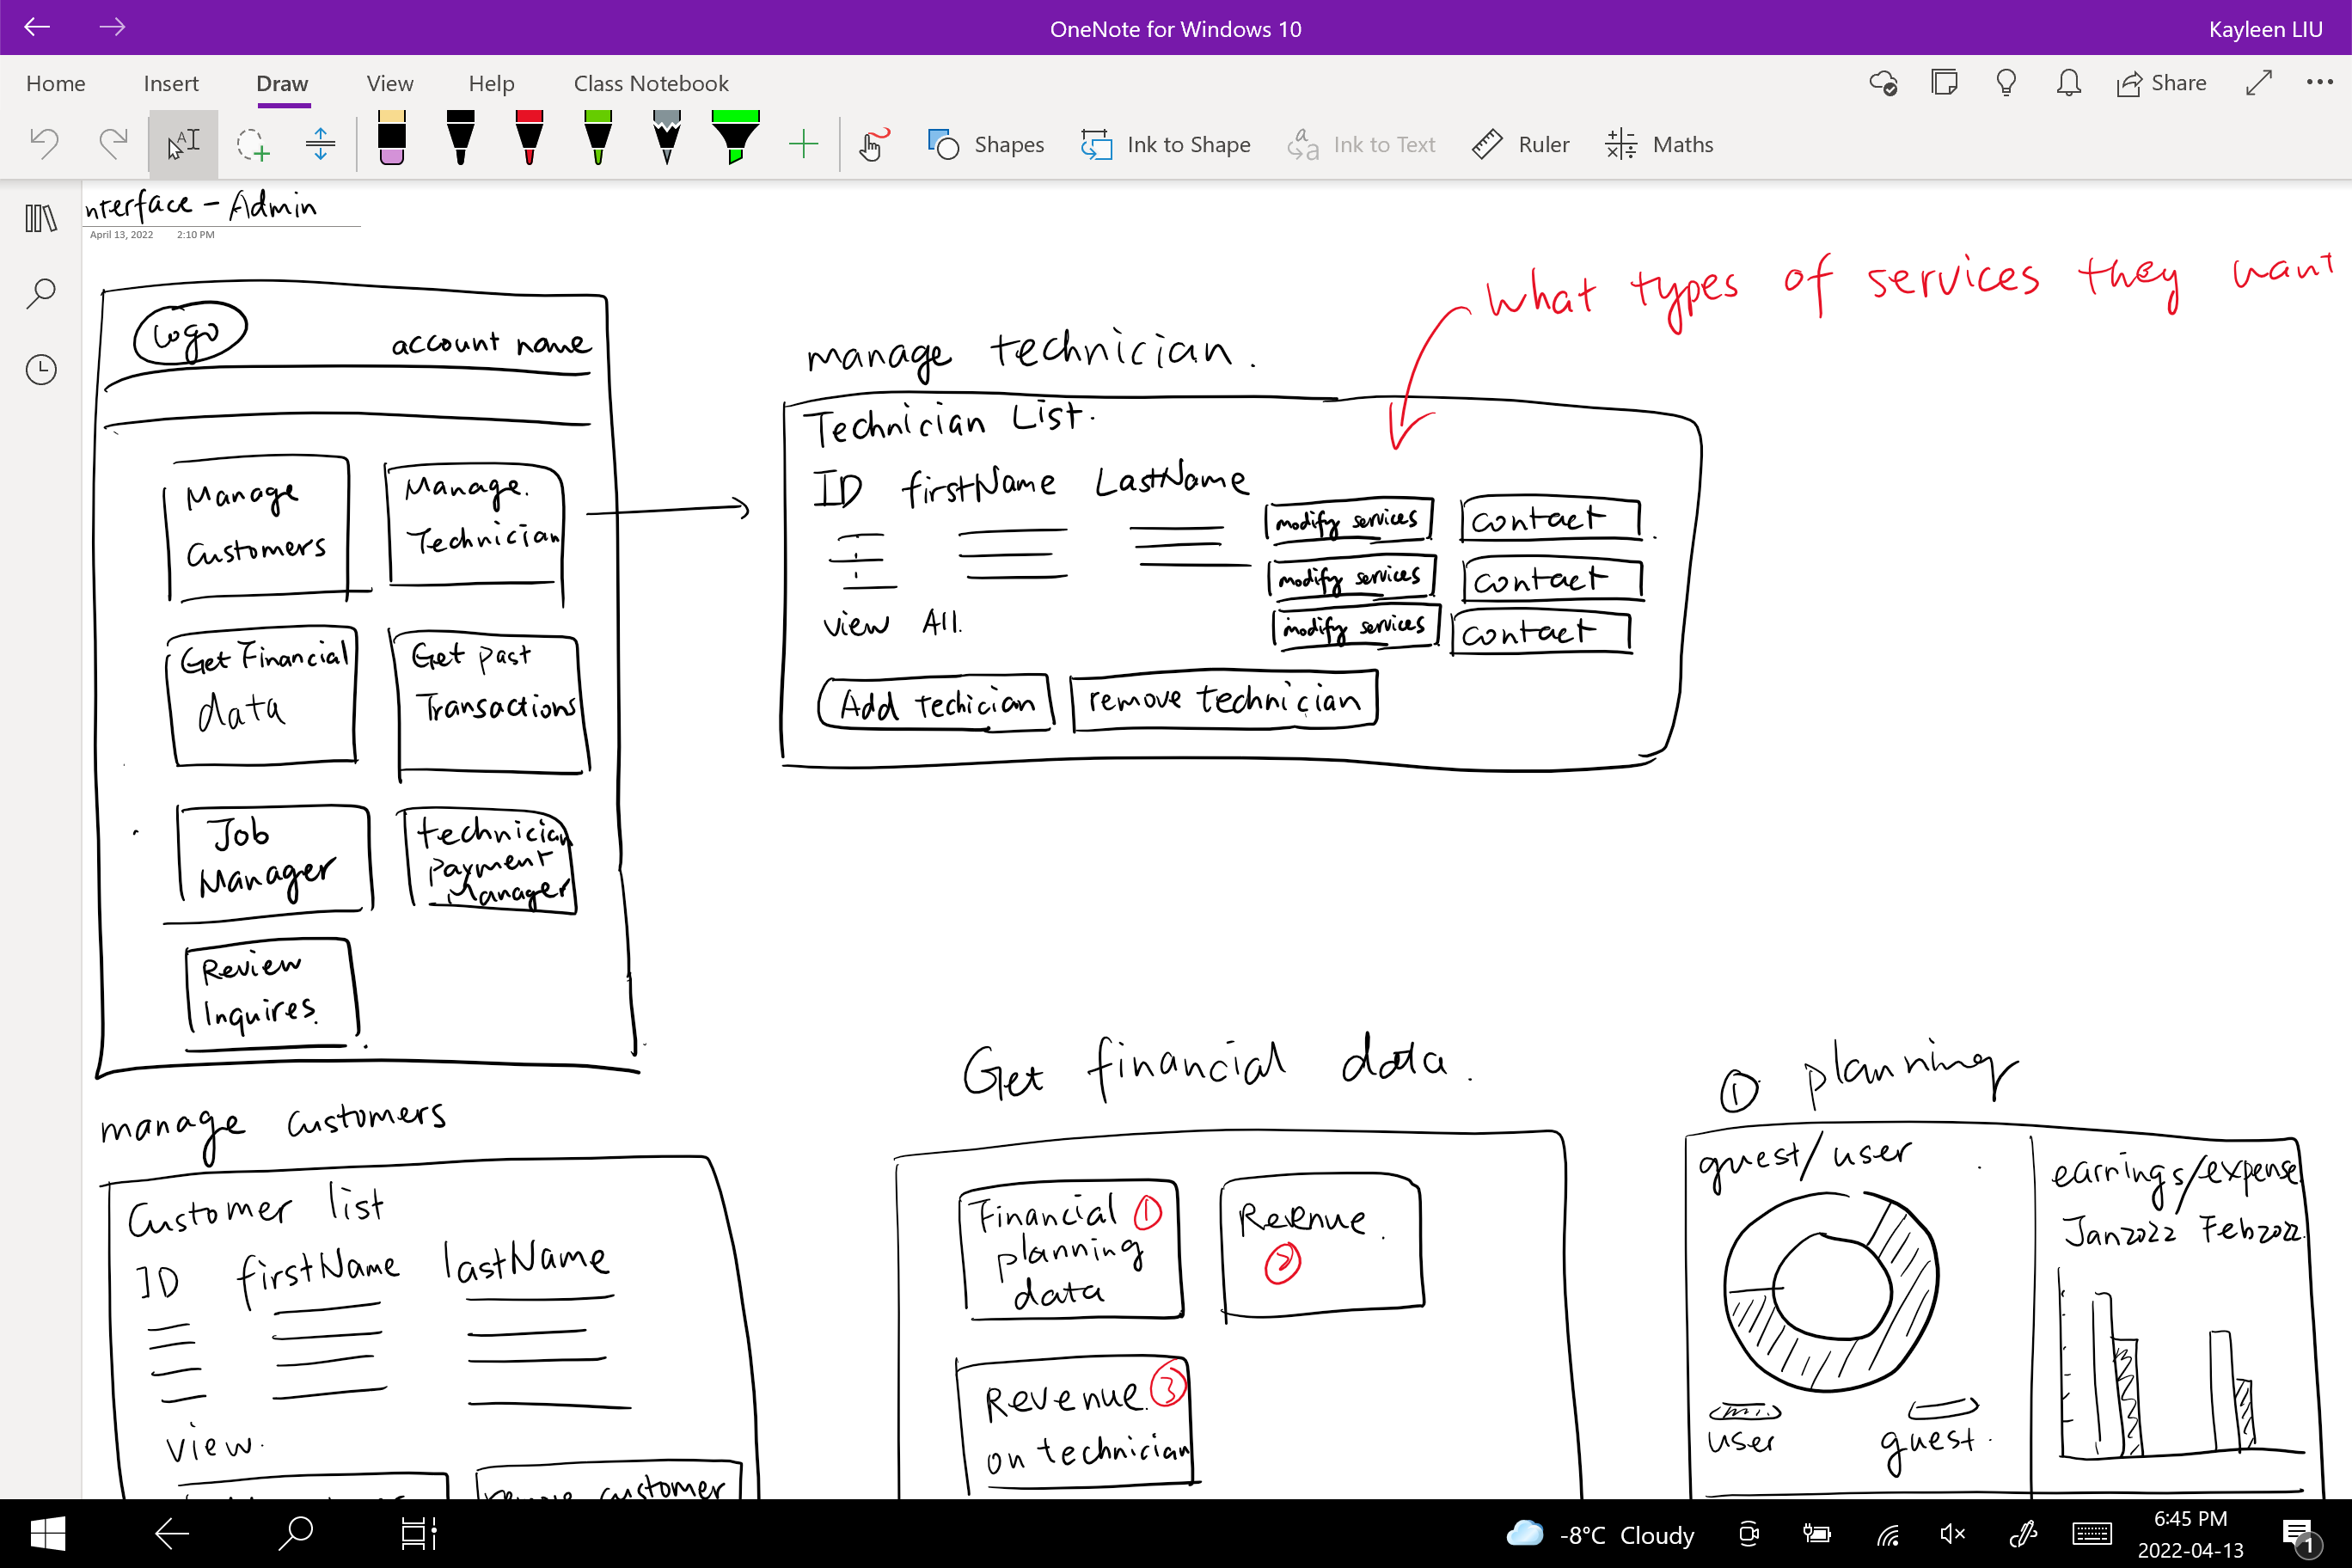 OneNote for Windows 10
Kayleen LIU
Home Insert Draw View Help Class Notebook
Share
Shapes Ink to Shape Ink to Text Ruler Maths
nterface - Admin
April 13, 2022 2:10 PM
Logo
account name
Manage
Customers
Manage.
Technician
Get Financial
data
Get Past
Transactions
Job
Manager
technician
payment
Manager
Review
Inquires.
what types of services they want
manage technician.
Technician List.
ID firstName LastName
modify services contact
modify services contact
modify services contact
view All.
Add techician remove technician
manage customers
Customer list
ID firstName lastName
view.
remove customer
Get financial data.
Financial ①
planning
data
Revenue.
②
Revenue. ③
on technician
① planning
guest/user
user guest.
earnings/expense
Jan2022 Feb2022
-8°C Cloudy
6:45 PM
2022-04-13
1